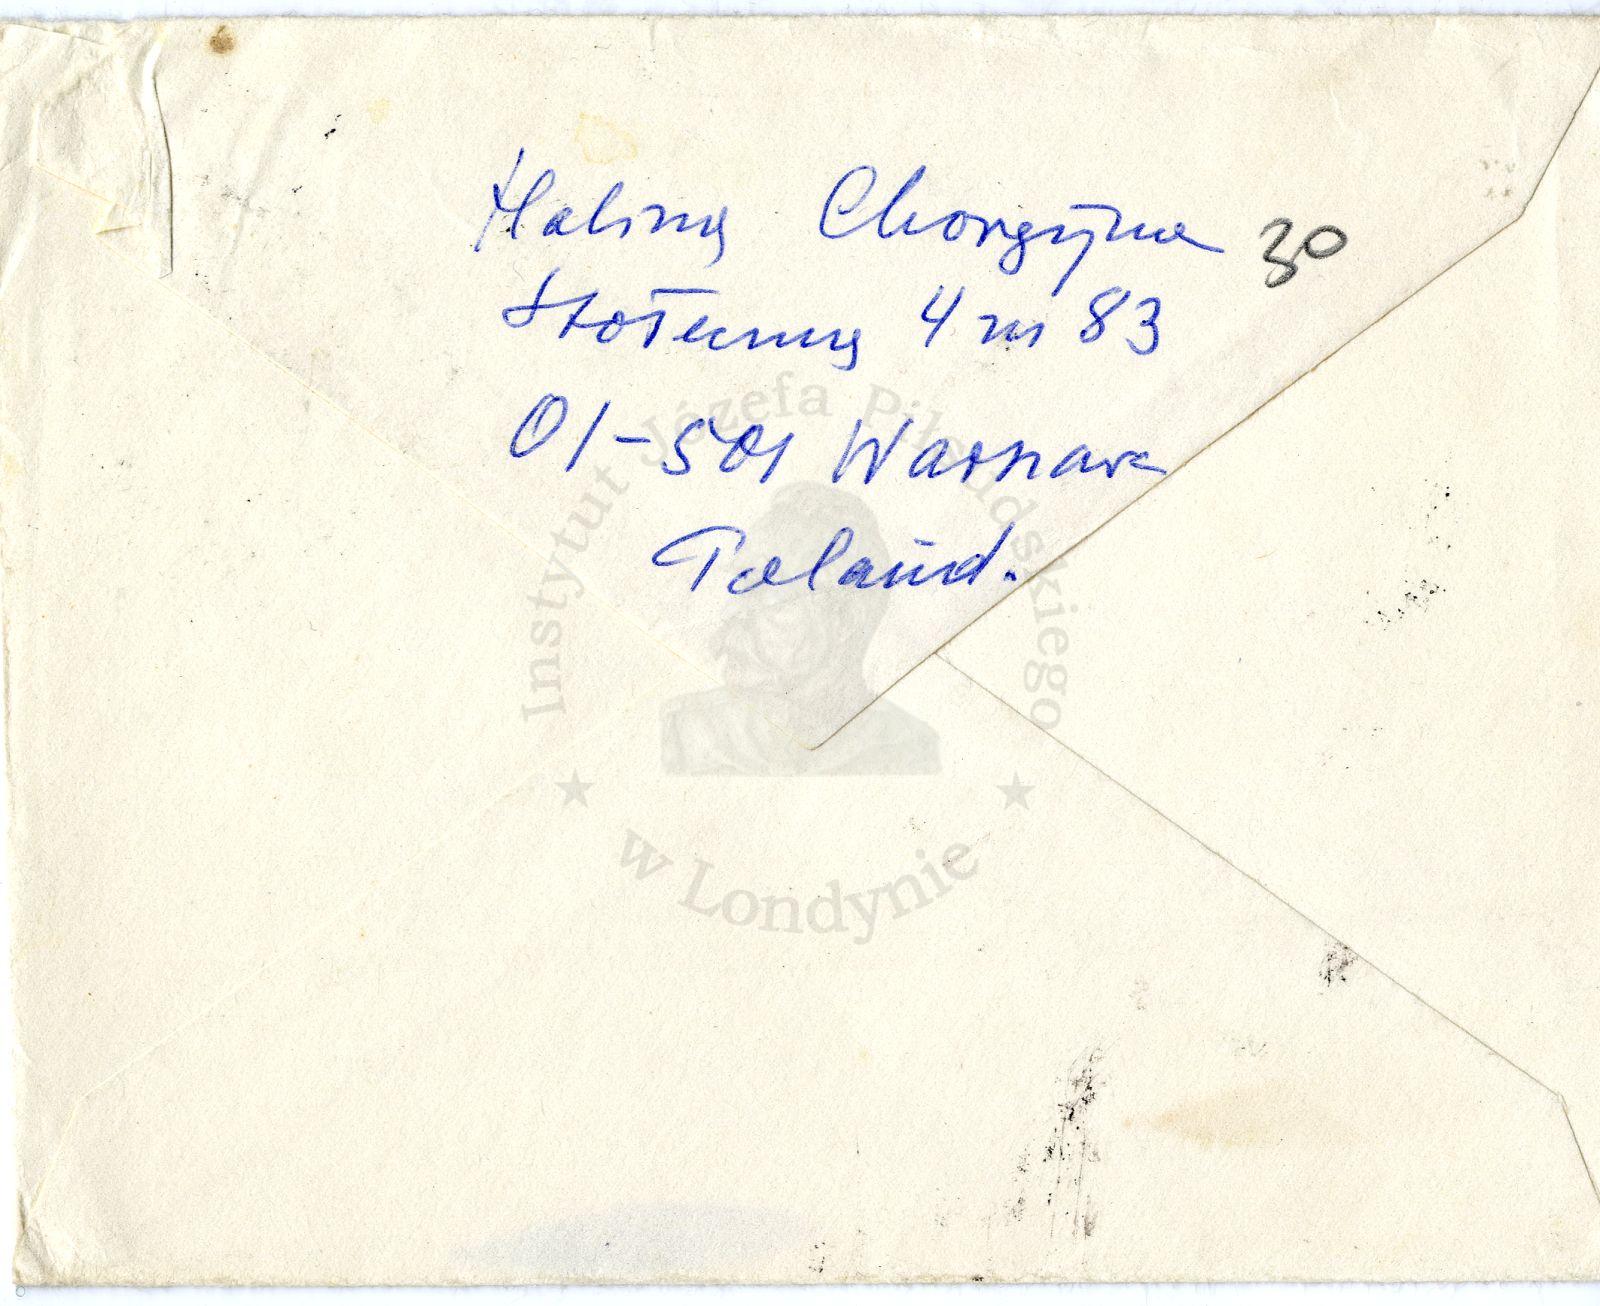 Halina Chorąży 30
Stołeczna 4 m 83
01-501 Warszawa
Poland.
Instytut Józefa Piłsudskiego
w Londynie